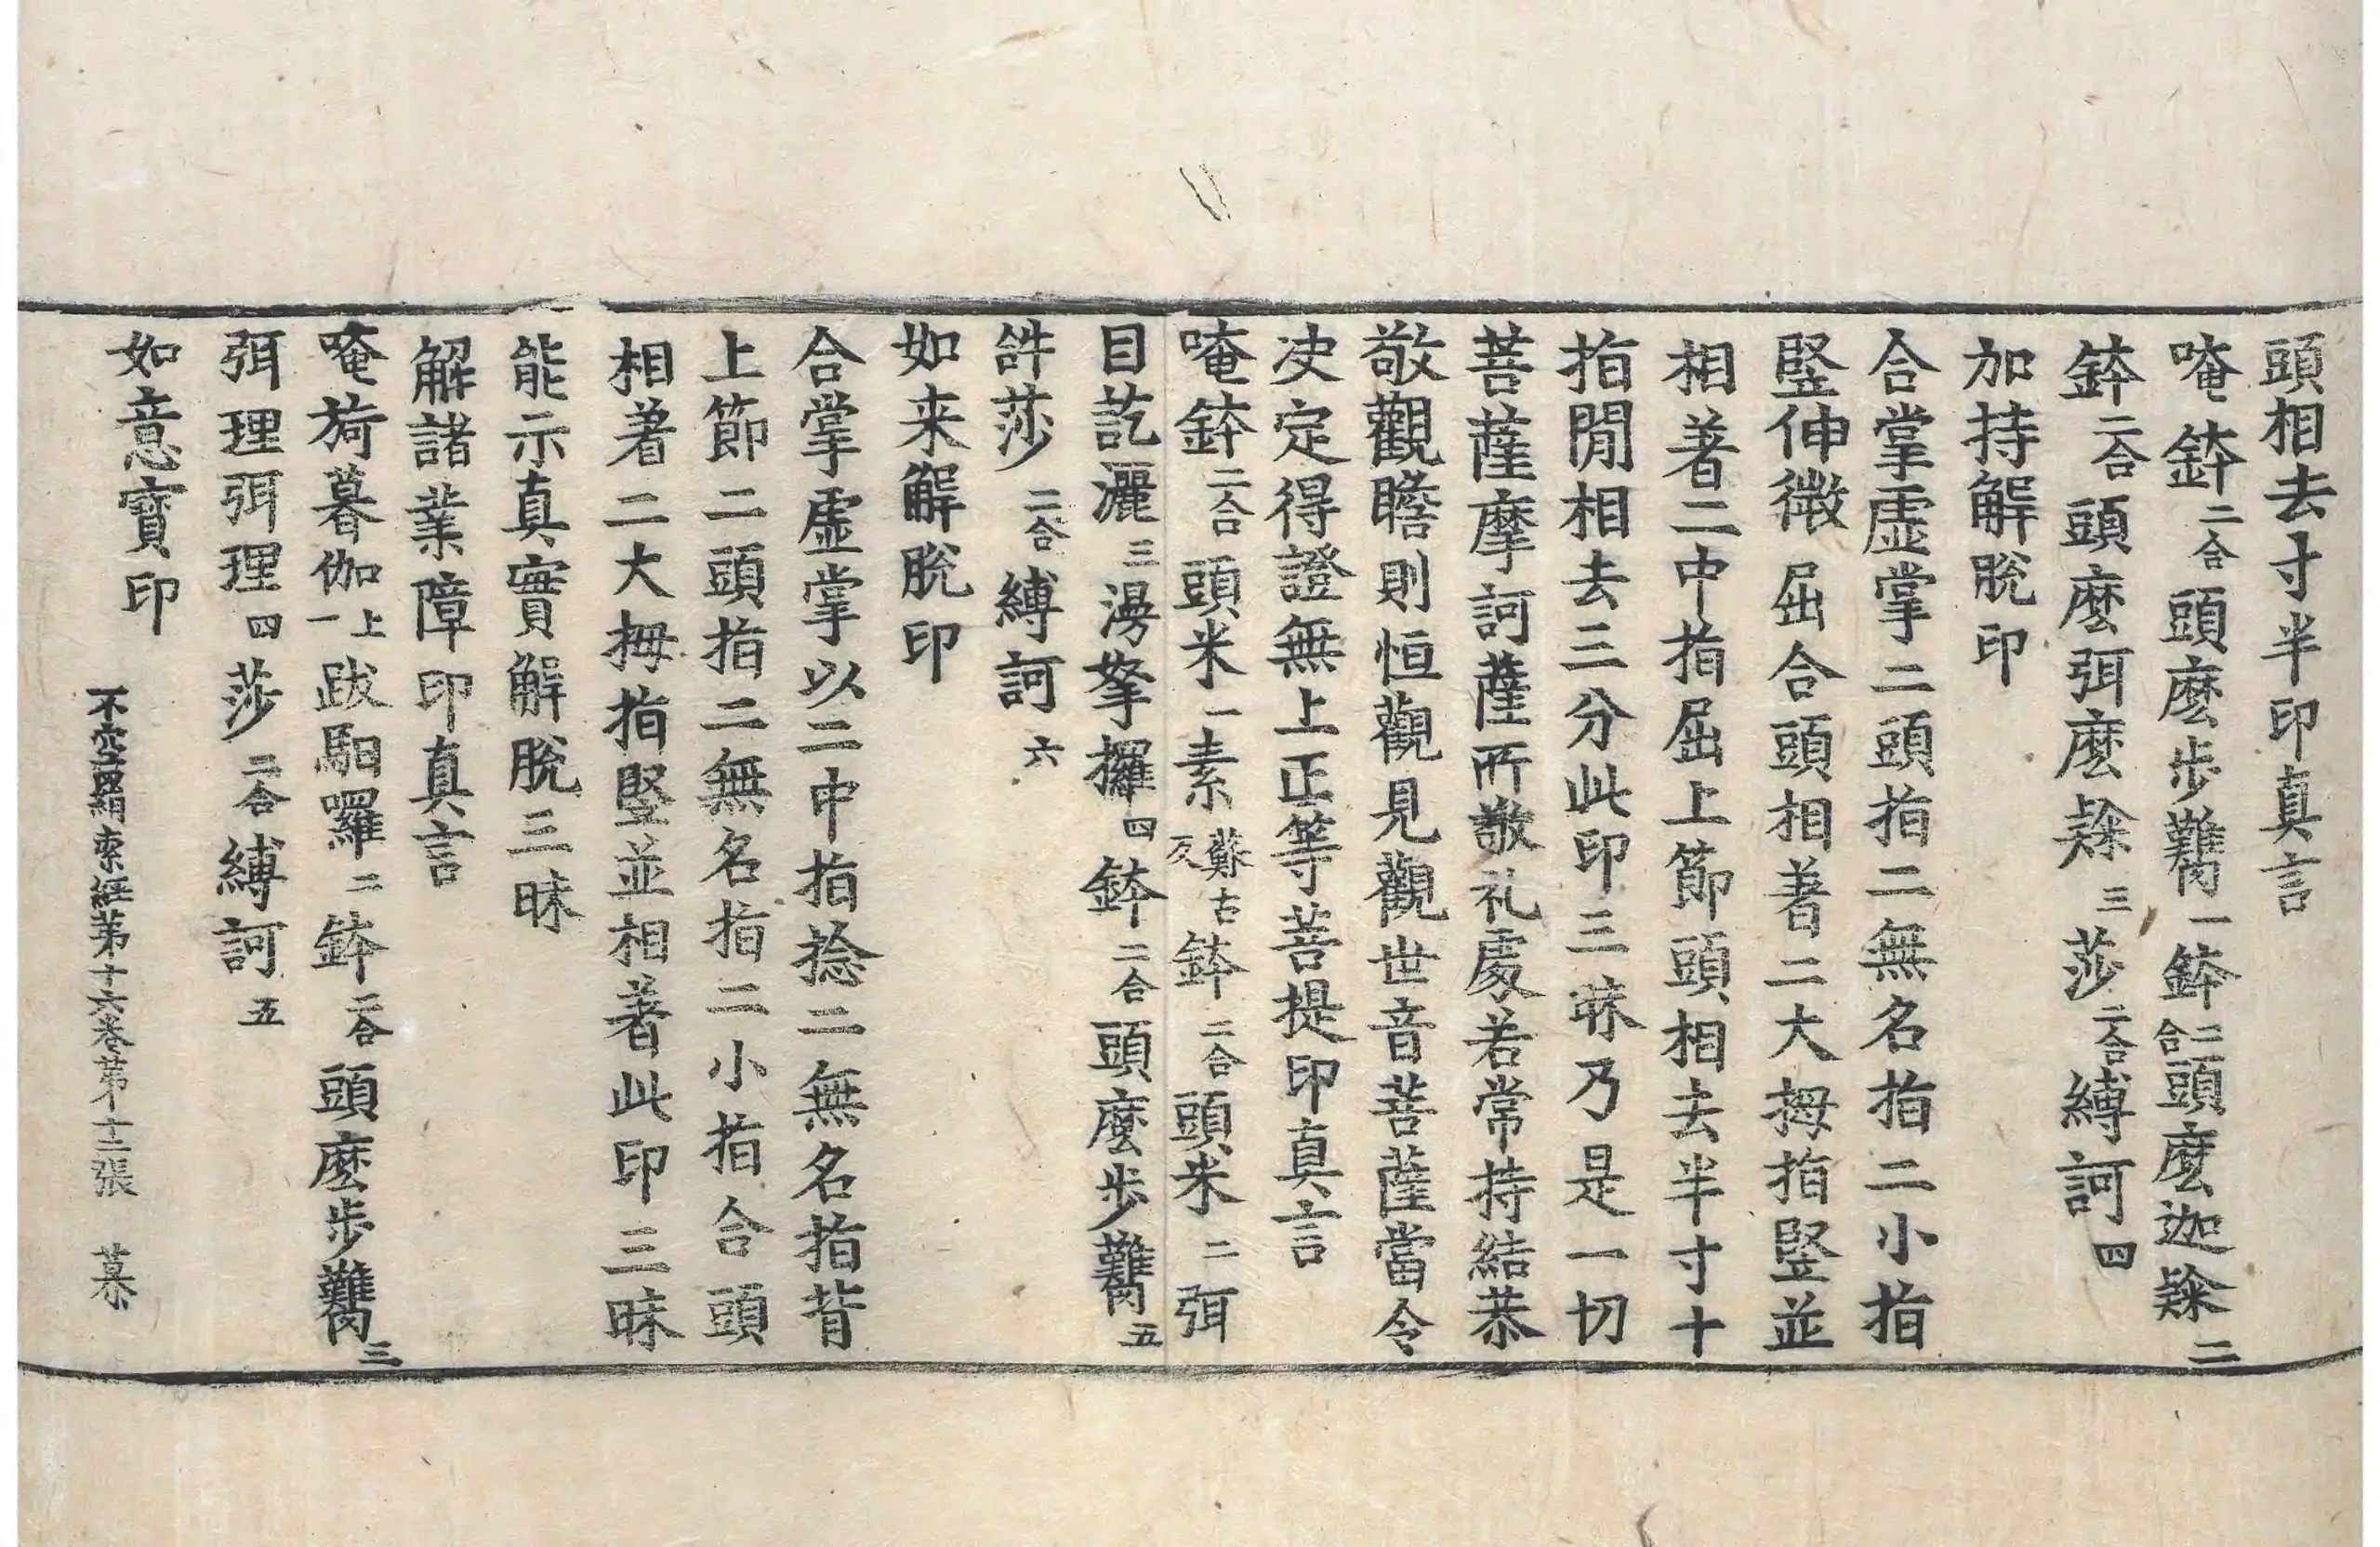 頭相去寸半印真言
唵鉢二合頭麽步難一鉢二合頭麽迦㘓二
鉢二合頭麽弭麽㘓三莎二合縛訶四
加持解脫印
合掌虛掌二頭指二無名指二小指
竪伸微屈合頭相著二大拇指竪並
相著二中指屈上節頭相去半寸十
指閒相去三分此印三昧乃是一切
菩薩摩訶薩所敬礼處若常持結恭
敬觀瞻則恒觀見觀世音菩薩當令
决定得證無上正等菩提印真言
唵鉢二合頭米一素蘇古反鉢二合頭米二弭
目訖灑三湯拏攞四鉢二合頭麽步五
許莎二合縛訶六
如来解脫印
合掌虛掌以二中指捻二無名指背
上節二頭指二無名指二小指合頭
相著二大拇指竪並相著此印三昧
能示真實解脫三昧
解諸業障印真言
唵旖暮伽上一跋馹囉二鉢二合頭麽步三
弭理弭理四莎二合縛訶五
如意寶印
不空罥索經第十六卷第十二張 慕